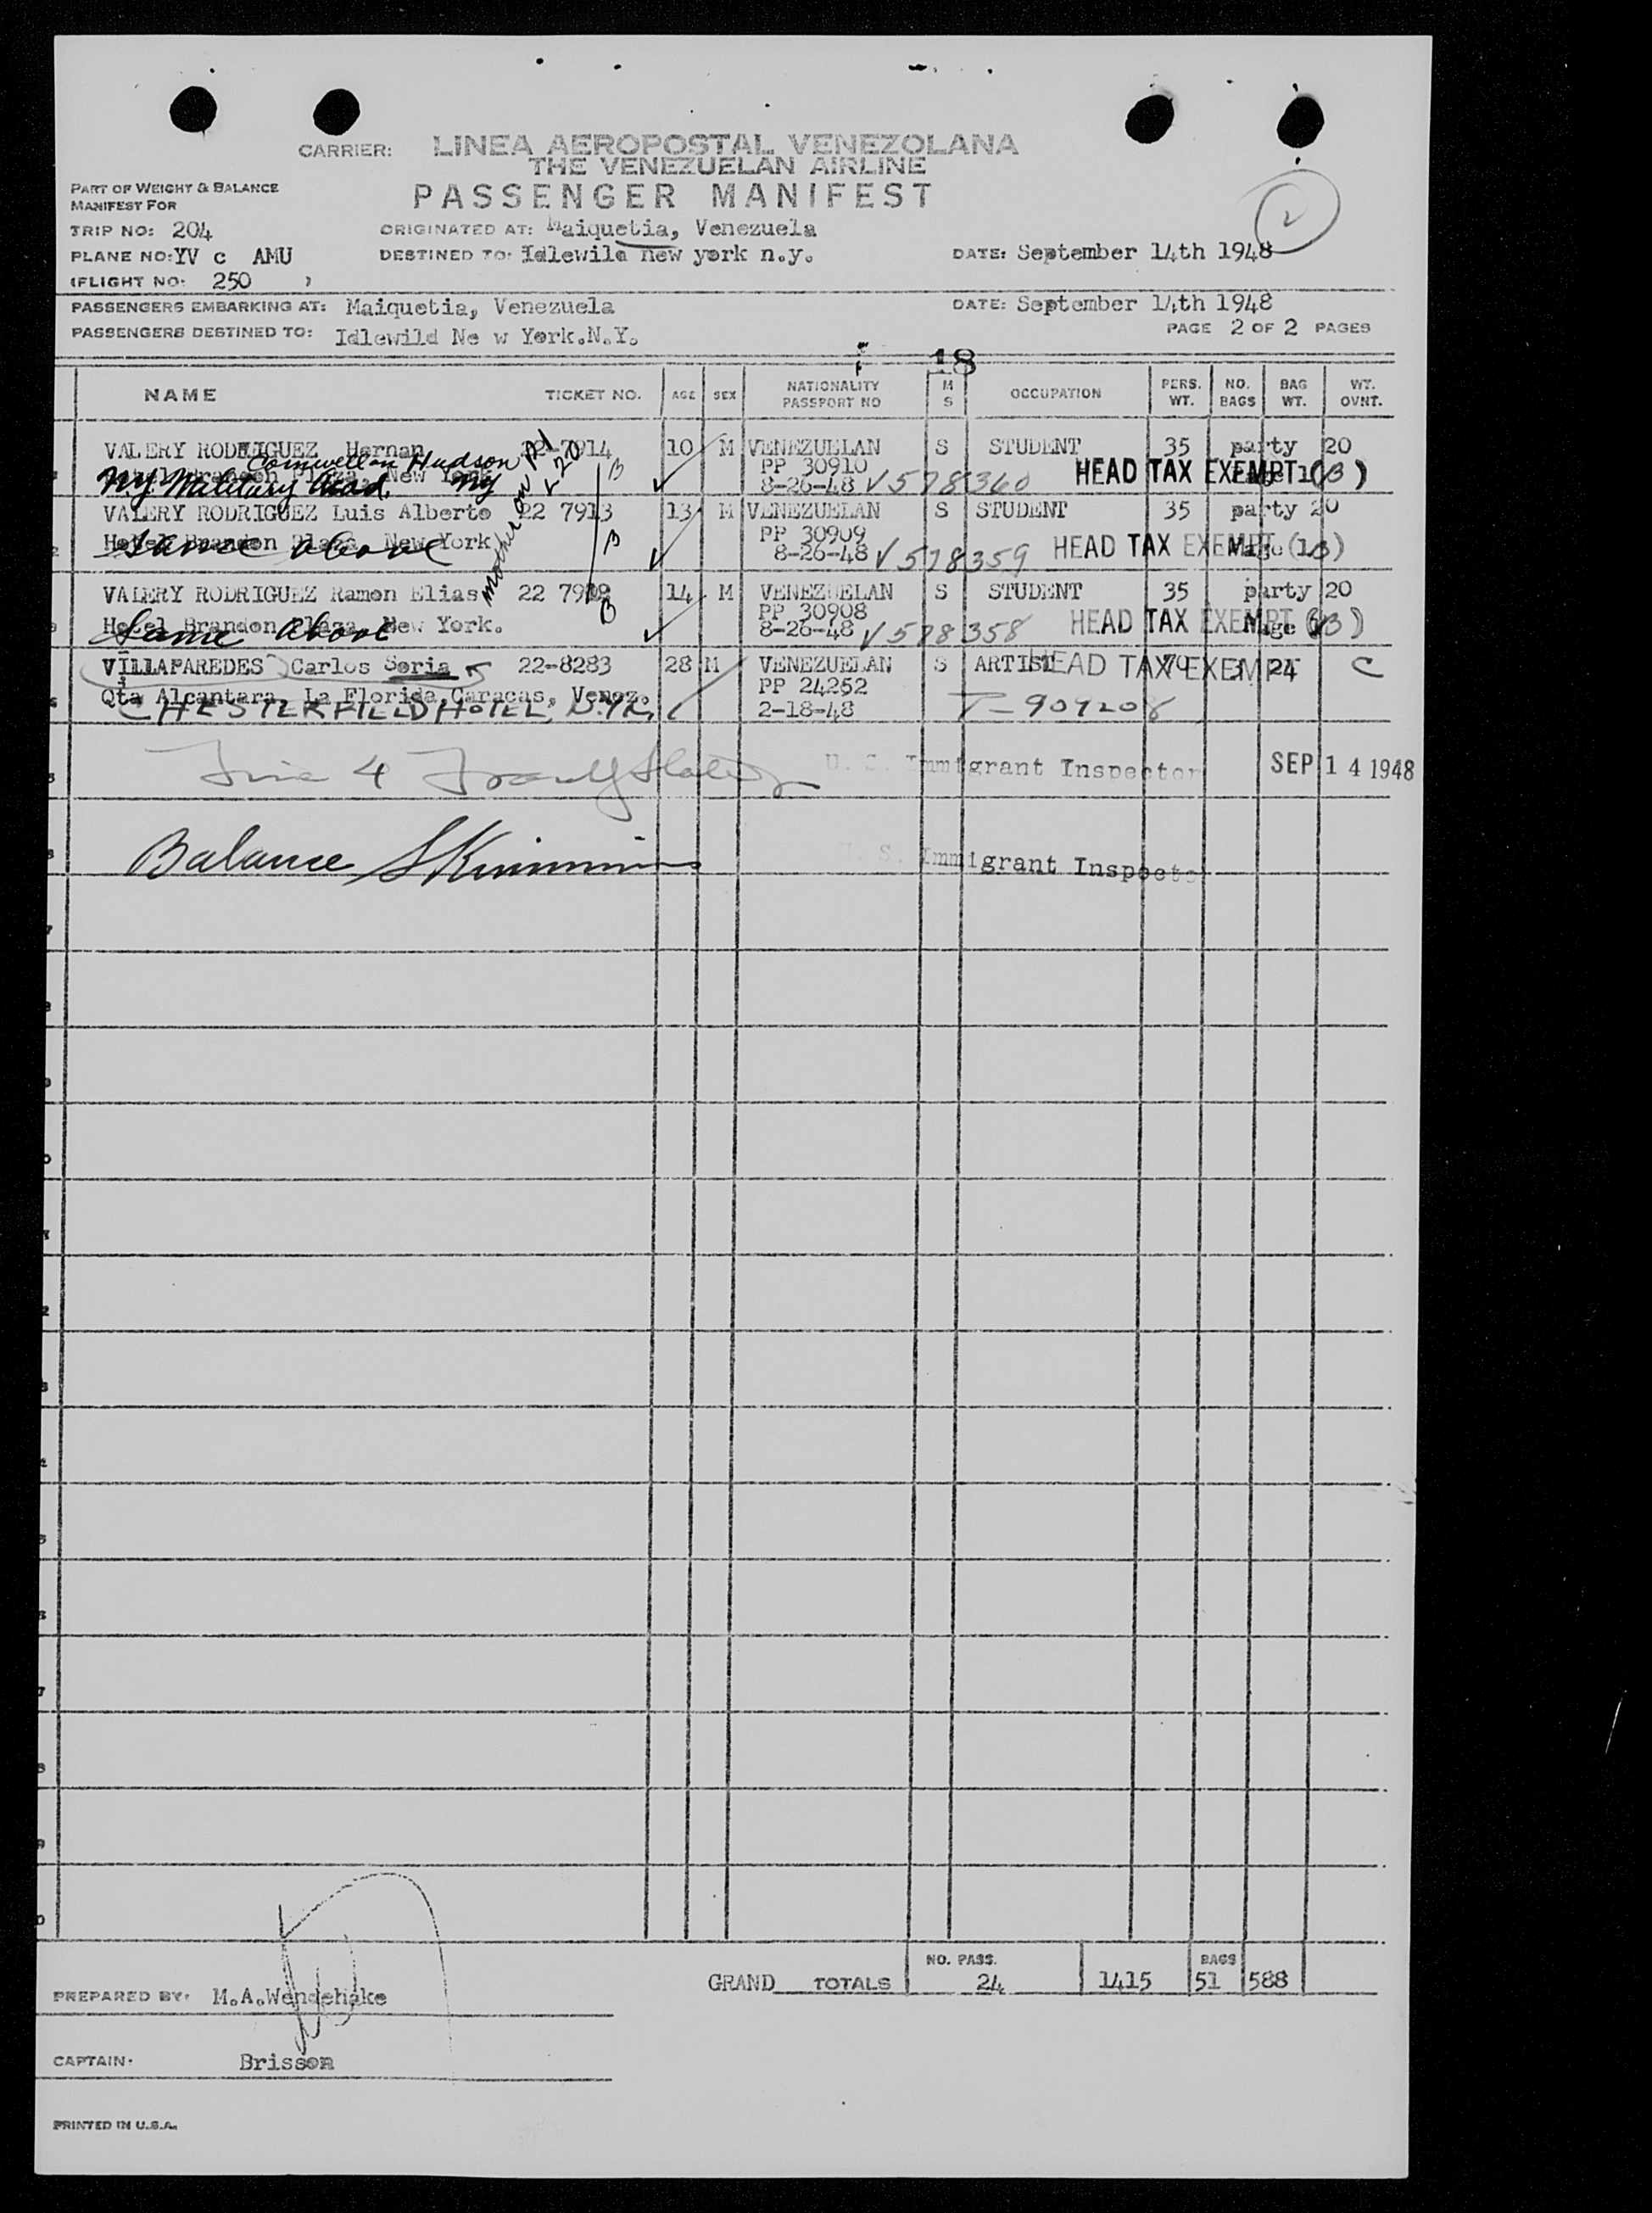 CARRIER: LINEA AEROPOSTAL VENEZOLANA
THE VENEZUELAN AIRLINE
PASSENGER MANIFEST
PART OF WEIGHT & BALANCE
MANIFEST FOR
TRIP NO: 204 ORIGINATED AT: Maiquetia, Venezuela
PLANE NO: YV c AMU DESTINED TO: Idlewild new york n.y. DATE: September 14th 1948
(FLIGHT NO: 250 )
PASSENGERS EMBARKING AT: Maiquetia, Venezuela DATE: September 14th 1948
PASSENGERS DESTINED TO: Idlewild Ne w York.N.Y. PAGE 2 OF 2 PAGES
18
NAME TICKET NO. AGE SEX NATIONALITY PASSPORT NO M S OCCUPATION PERS. WT. NO. BAGS BAG WT. WT. OVNT.
VALERY RODRIGUEZ Hernan 22-7914 10 M VENEZUELAN S STUDENT 35 party 20
Cornwell on Hudson
PP 30910 HEAD TAX EXEMPT (B)
NY Military Acad. NY 8-26-48 V578360
mother on P1 L 20
VALERY RODRIGUEZ Luis Alberto 22 7913 13 M VENEZUELAN S STUDENT 35 party 20
Hotel Brandon Plaza, New York PP 30909
Same above 8-26-48 V578359 HEAD TAX EXEMPT (B)
VALERY RODRIGUEZ Ramon Elias 22 14 M VENEZUELAN S STUDENT 35 party 20
Hotel Brandon Plaza New York. PP 30908
Same above 8-26-48 V578358 HEAD TAX EXEMPT (B)
VILLAPAREDES Carlos Soria 22-8283 28 M VENEZUELAN S ARTIST HEAD TAX EXEMPT 24 C
Qta Alcantara, La Florida, Caracas, Venez. PP 24252
CHESTERFIELD HOTEL, N.YK. 2-18-48 T-909208
Line 4 U. S. Immigrant Inspector SEP 14 1948
Balance U. S. Immigrant Inspector
GRAND TOTALS NO. PASS. 24 1415 BAGS 51 588
PREPARED BY: M.A.Wendehake
CAPTAIN: Brisson
PRINTED IN U.S.A.